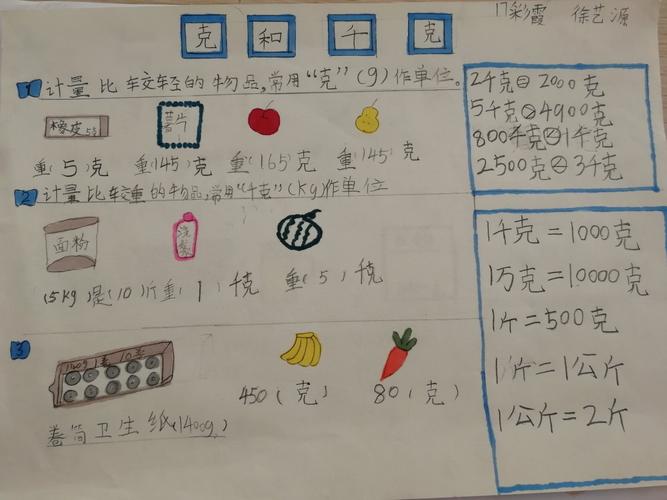 17彩霞 徐艺源
克和千克
1 计量比较轻的物品,常用“克”(g)作单位。
橡皮5g
薯片
重(5)克 重(145)克 重(165)克 重(145)克
2 计量比较重的物品,常用“千克”(kg)作单位
面粉
(5kg)是(10)斤 重(1)千克 重(5)千克
3
1400g 1提10卷
450(克) 80(克)
卷筒卫生纸(1400g)
2千克=2000克
5千克>4900克
2500克<3千克
1千克=1000克
1万克=10000克
1斤=500克
1公斤=2斤